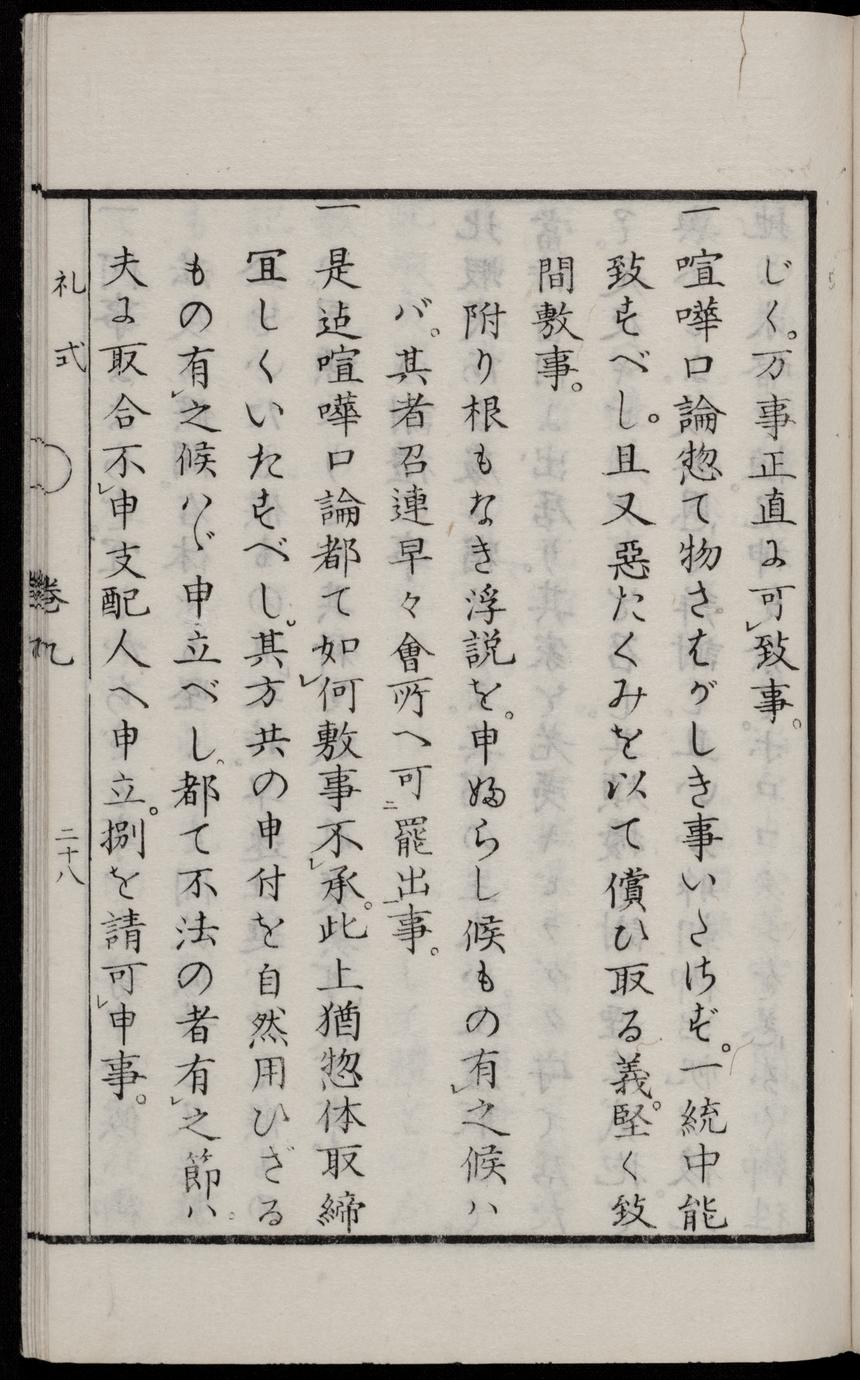 じく。万事正直に可レ致事。
一喧嘩口論惣て物さはがしき事いたさず。一統中能
致すべし。且又惡だくみを以て償ひ取る義。堅く致
間敷事。
附り根もなき浮説を。申婦らし候もの有レ之候ハ
バ。其者召連早々會所へ可二罷出一事。
一是迠喧嘩口論都て如レ何敷事不レ承。此上猶惣体取締
冝しくいたすべし。其方共の申付を自然用ひざる
もの有レ之候ハゞ申立べし。都て不法の者有レ之節ハ。
夫に取合不レ申支配人へ申立。捌を請可レ申事。
礼式
巻九
二十八